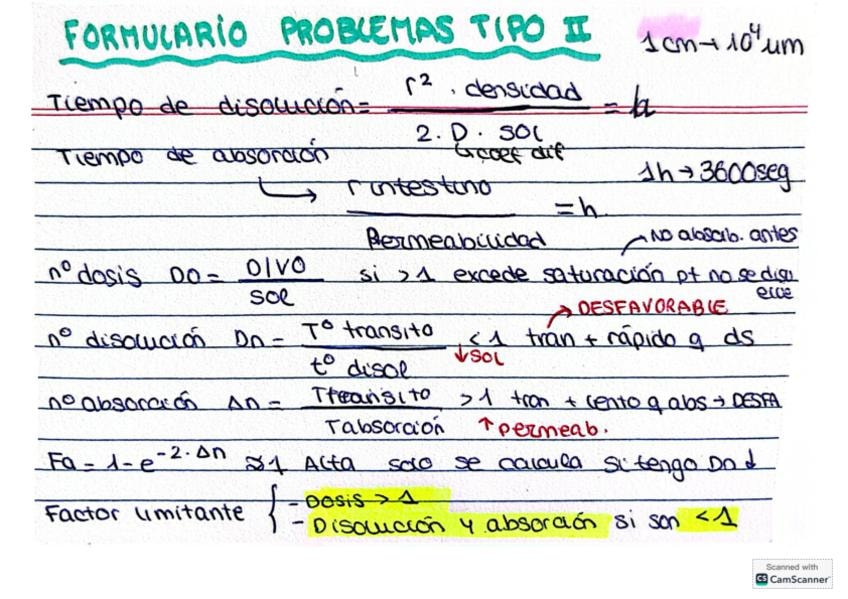 FORMULARIO PROBLEMAS TIPO II
1cm → 10⁴ um
Tiempo de disolución = r² . densidad / 2. D. SOL = h
↳ coef dif
Tiempo de absorción
1h → 3600seg
↳ r intestino / Permeabilidad = h
NO absorb. antes
nº dosis DO = D/VO / SOL si > 1 excede saturación pt no se disu
elve
→ DESFAVORABLE
nº disolución Dn = Tº transito / tº disol < 1 tran + rápido q ds
↓ SOL
nº absorción An = Ttransito / Tabsorción > 1 tran + lento q abs → DESFA
↑ permeab.
Fa = 1 - e^-2.An ≈ 1 Alta solo se calcula si tengo Dn ↓
Factor limitante { - Dosis > 1
- Disolución y absorción si son < 1
Scanned with
CS CamScanner